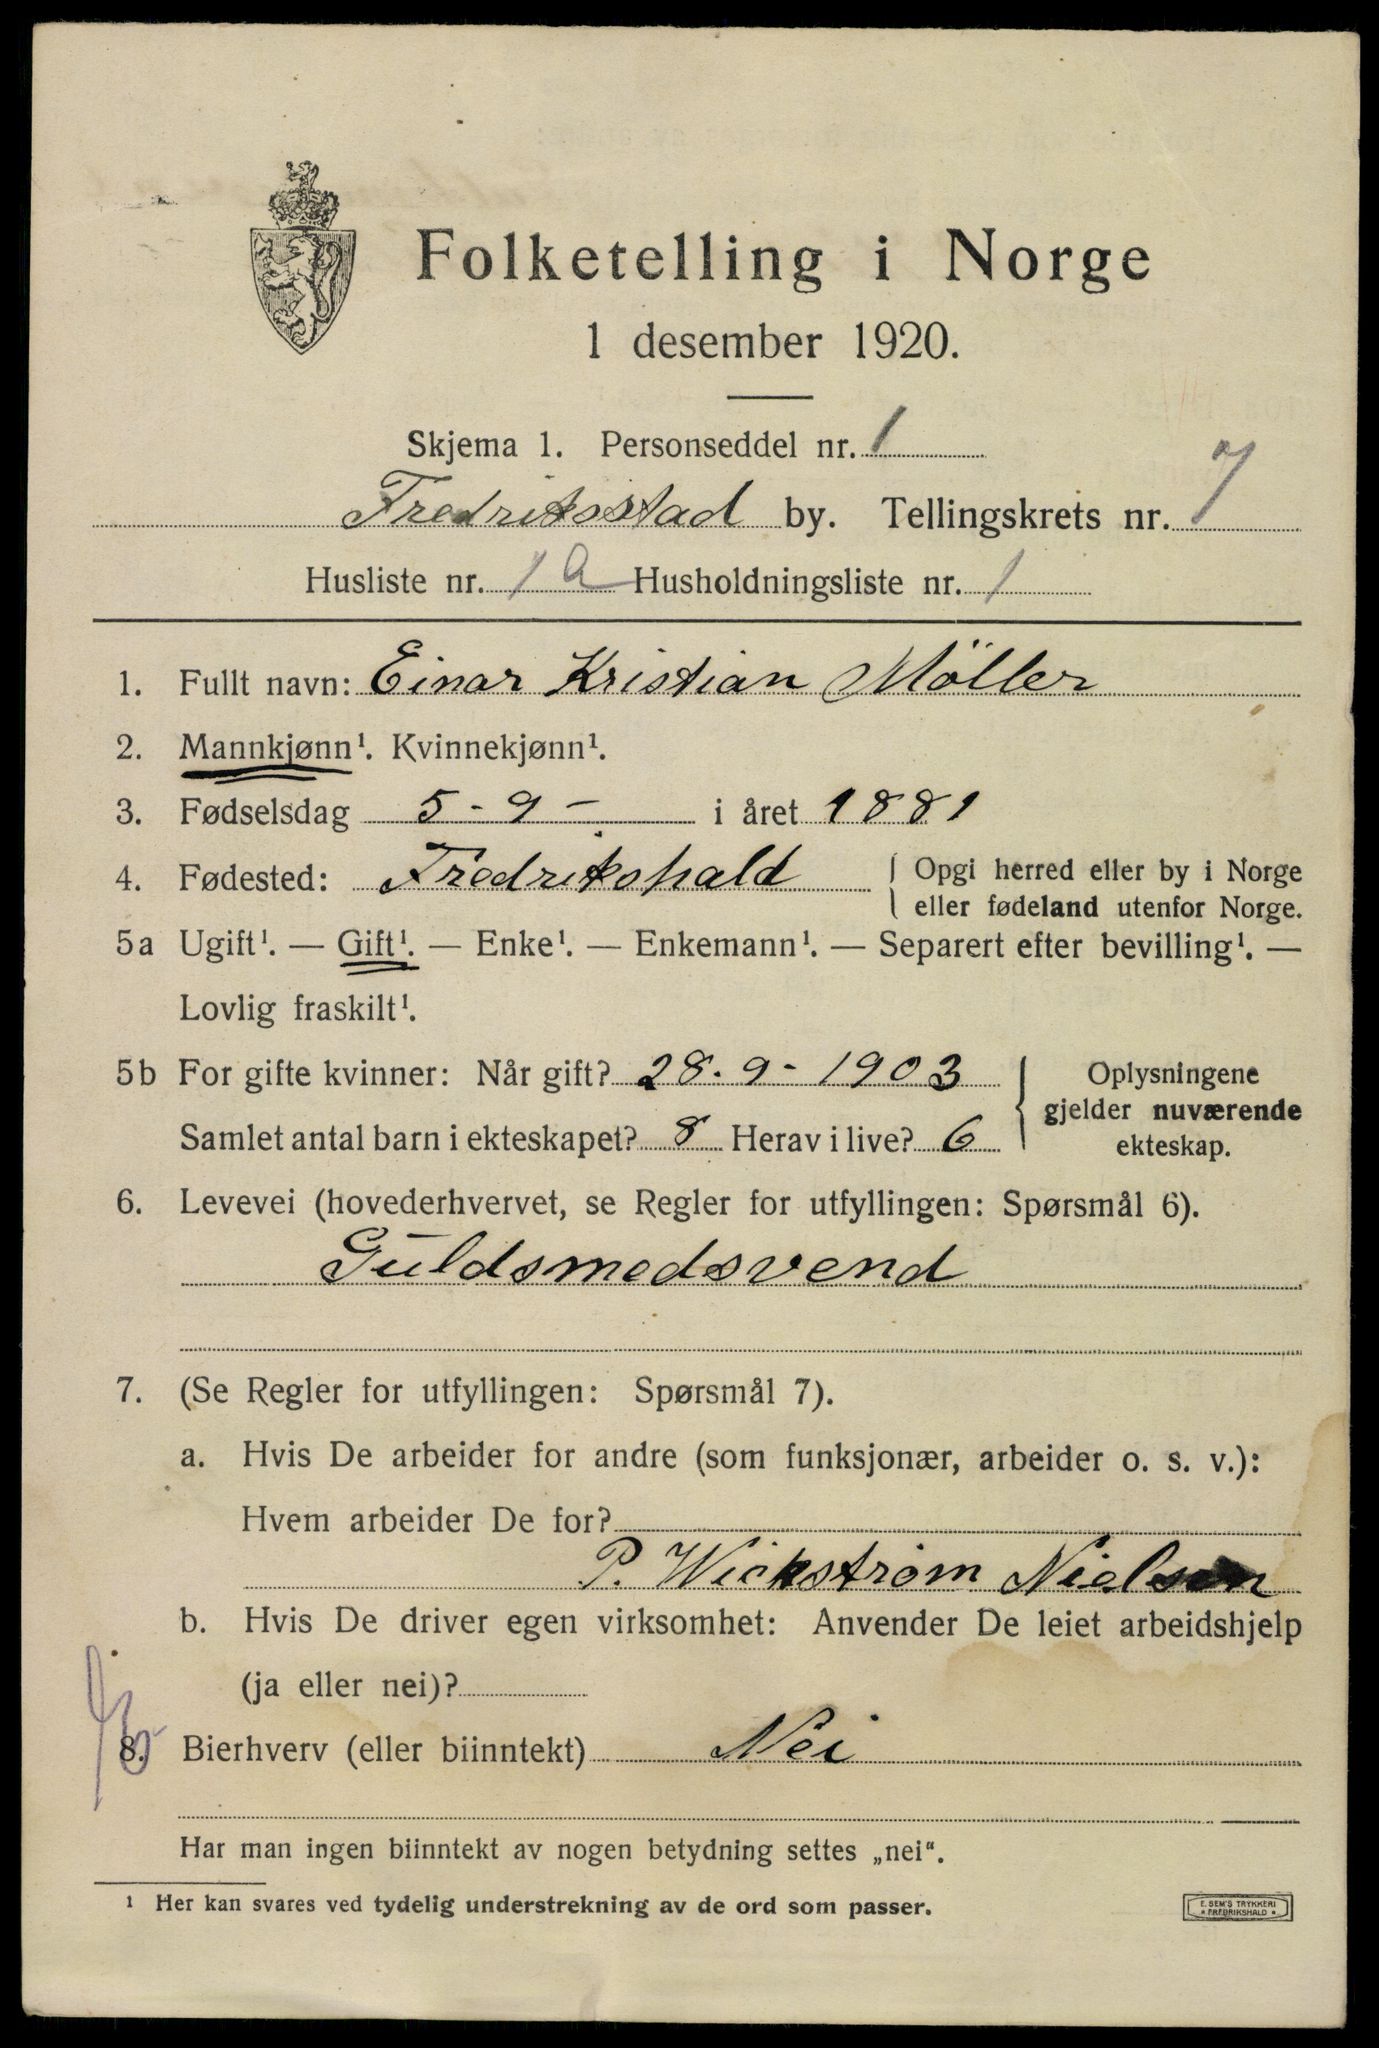 Folketelling i Norge
1 desember 1920.
Skjema 1. Personseddel nr. 1
Fredriksstad by. Tellingskrets nr. 7
Husliste nr. 1a Husholdningsliste nr. 1
1. Fullt navn: Einar Kristian Möller
2. Mannkjønn¹. Kvinnekjønn¹.
3. Fødselsdag 5-9- i året 1881
4. Fødested: Fredrikshald { Opgi herred eller by i Norge
eller fødeland utenfor Norge.
5a Ugift¹. — Gift¹. — Enke¹. — Enkemann¹. — Separert efter bevilling¹. —
Lovlig fraskilt¹.
5b For gifte kvinner: Når gift? 28-9-1903
Samlet antal barn i ekteskapet? 8 Herav i live? 6
Oplysningene
gjelder nuværende
ekteskap.
6. Levevei (hovederhvervet, se Regler for utfyllingen: Spørsmål 6).
Guldsmedsvend
7. (Se Regler for utfyllingen: Spørsmål 7).
a. Hvis De arbeider for andre (som funksjonær, arbeider o. s. v.):
Hvem arbeider De for?
P. Wickstrøm Nielsen
b. Hvis De driver egen virksomhet: Anvender De leiet arbeidshjelp
(ja eller nei)?
8. Bierhverv (eller biinntekt) Nei
Har man ingen biinntekt av nogen betydning settes „nei“.
¹ Her kan svares ved tydelig understrekning av de ord som passer.
E. SEM'S TRYKKERI
* FREDRIKSHALD *